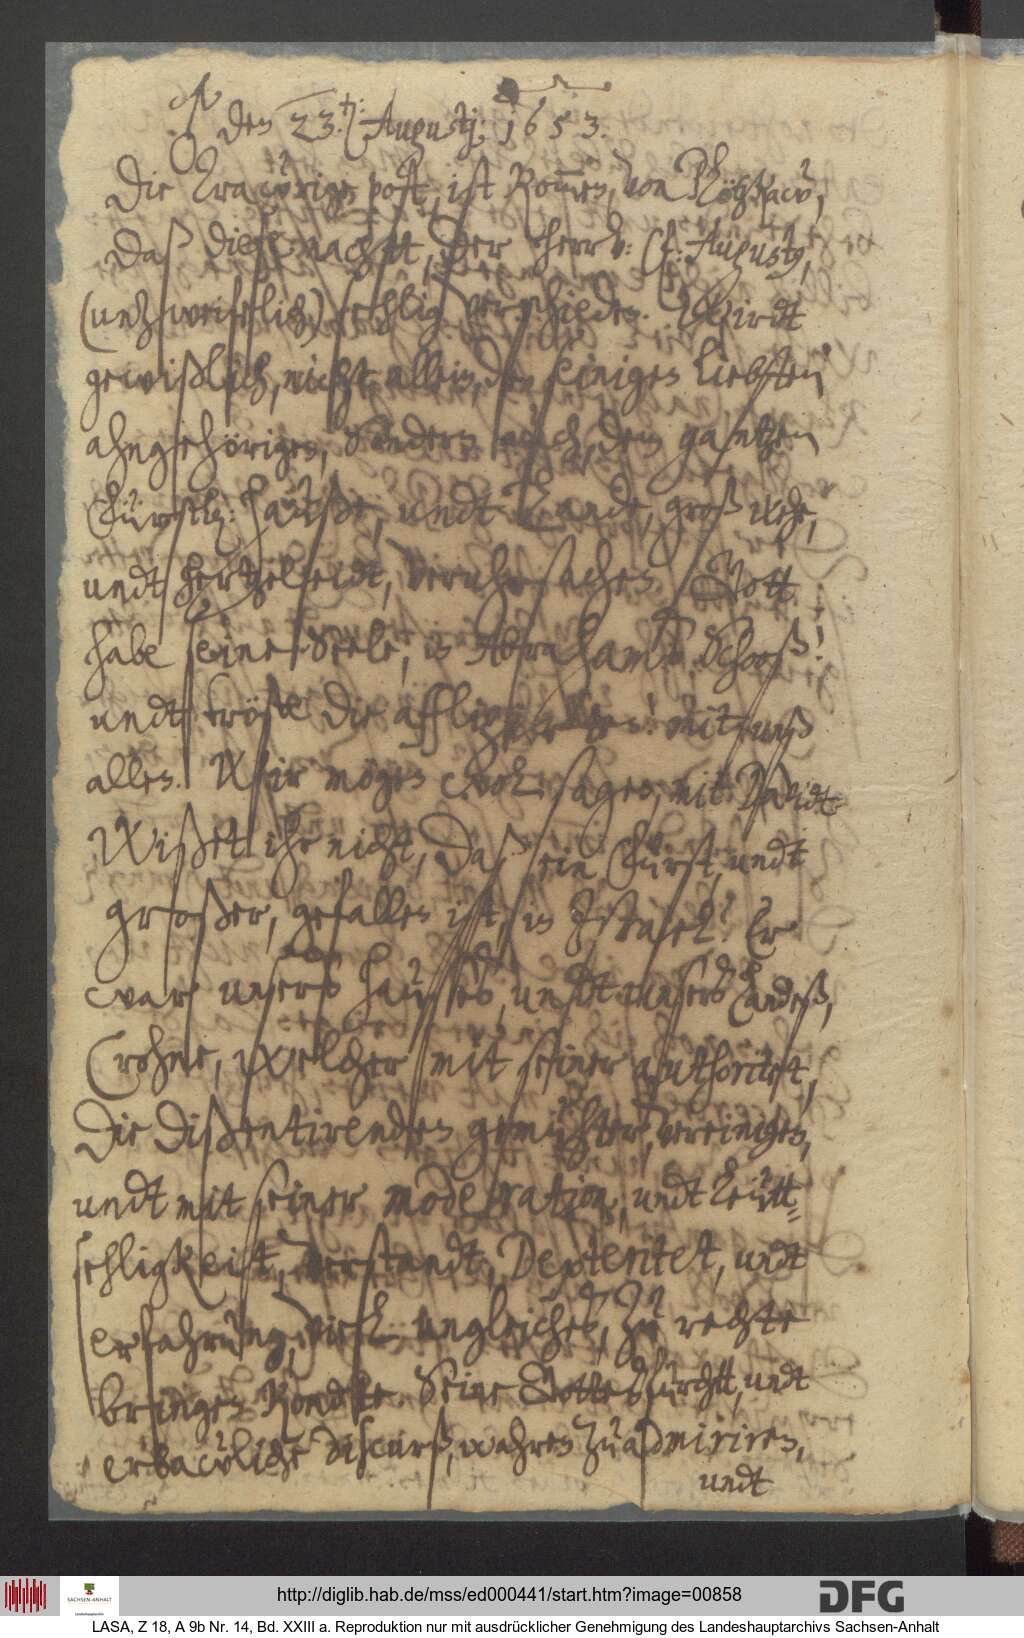 den 23. Augusti: 1653.
Die trawrige post, ist kommen, von Plötzkaw,
daß diese nacht, der herr v: F: Augusty,
(unzweifelich) sehlig verschieden. Wirdt
gewißlich, nicht allein, den seinigen liebsten
ahngehörigen, sondern auch, dem gantzen
Fürstl: hause, undt Lande, groß wehe,
undt hertzeleidt, veruhrsachen. Gott
habe seine Seele, in Abrahams Schooß!
undt tröste die affligirten! mit unß
allen. Wir mögen wol sagen, mit David:
Wißet ihr nicht, daß ein Fürst, undt
großer, gefallen ist, in Israel? Er
war unsers hauses, undt unsers Landeß,
Crohne, welcher mit seiner authoritet,
Die dißentirenden gemühter, vereinigen,
undt mit seiner moderation, undt leütt=
sehligkeit, verstandt, Dexteritet, undt
erfahrung, viel ungleiches, zu rechte
bringen kondte. Seine Gottesfurcht, undt
erbawliche discurß, wahren zu admiriren,
undt
http://diglib.hab.de/mss/ed000441/start.htm?image=00858
DFG
SACHSEN-ANHALT
Landeshauptarchiv
LASA, Z 18, A 9b Nr. 14, Bd. XXIII a. Reproduktion nur mit ausdrücklicher Genehmigung des Landeshauptarchivs Sachsen-Anhalt